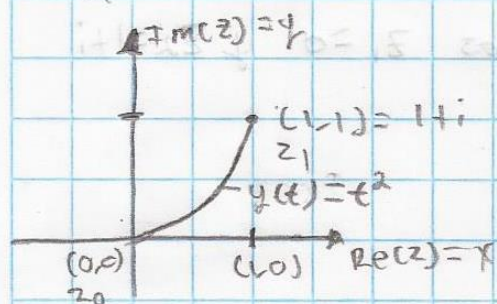 Im(z) = y
(1,1) = 1+i
z₁
y(t) = t²
(0,0)
(1,0)
Re(z) = x
z₀